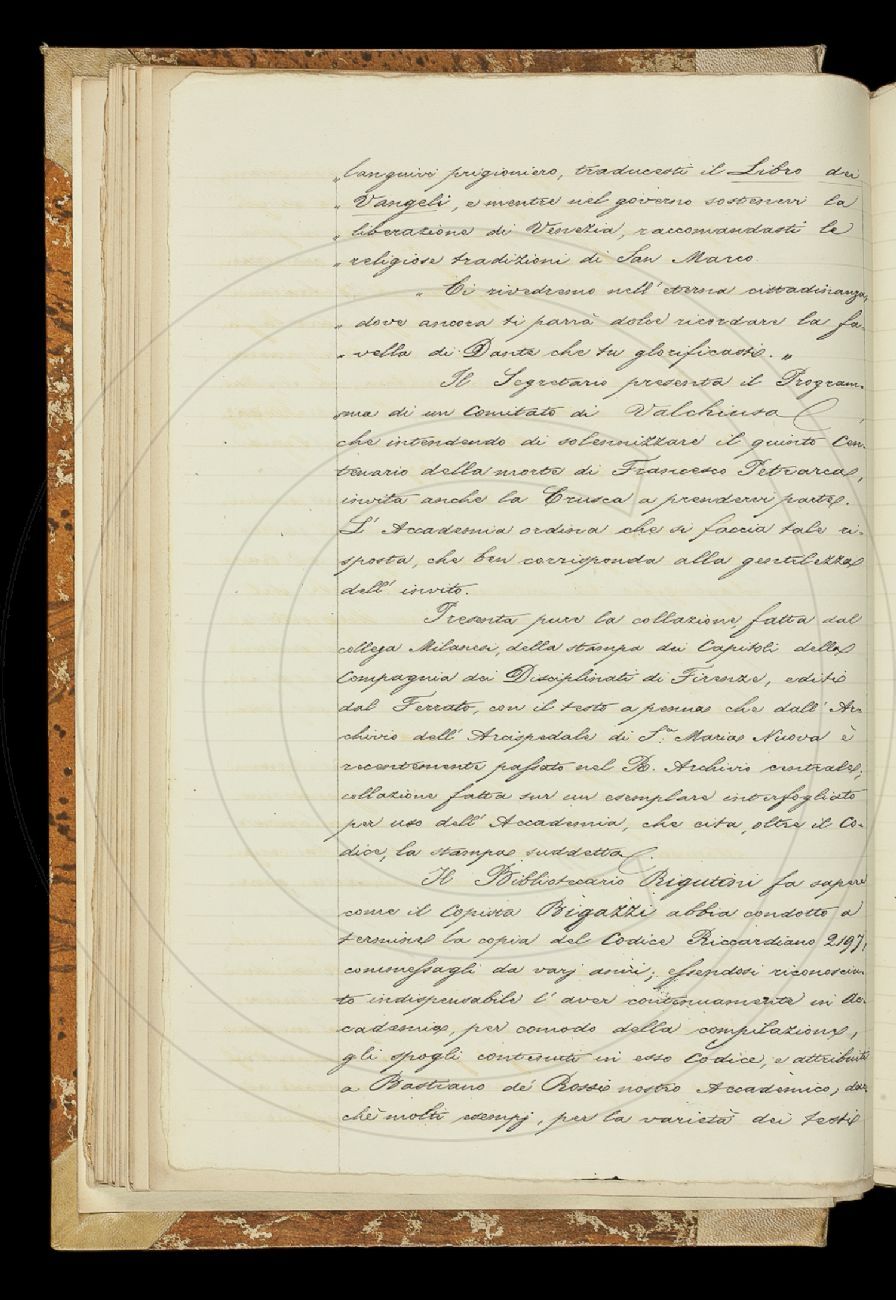 „ languivi prigioniero, traducesti il Libro dei
„ Vangeli, e mentre nel governo sostenevi la
„ liberazione di Venezia, raccomandasti le
„ religiose tradizioni di San Marco.
„ Ci rivedremo nell' eterna cittadinanza,
„ dove ancora ti parrà dolce ricordare la fa-
„ vella di Dante che tu glorificasti. „
Il Segretario presenta il Program-
ma di un Comitato di Valchiusa
che intendendo di solennizzare il quinto Cen-
tenario della morte di Francesco Petrarca,
invita anche la Crusca a prendervi parte.
L' Accademia ordina che si faccia tale ri-
sposta, che ben corrisponda alla gentilezza
dell' invito.
Presenta pure la collazione, fatta dal
collega Milanesi, della stampa dei Capitoli della
Compagnia dei Disciplinati di Firenze, editi
dal Ferrato, con il testo a penna che dall' Ar-
chivio dell' Arcispedale di S.ta Maria Nuova è
recentemente passato nel R. Archivio centrale;
collazione fatta sur un esemplare interfogliato
per uso dell' Accademia, che cita, oltre il Co-
dice, la stampa suddetta.
Il Bibliotecario Rigutini fa sapere
come il Copista Bigazzi abbia condotto a
termine la copia del Codice Riccardiano 2197,
commessagli da varj anni; essendosi riconosciu-
to indispensabile l' aver continuamente in Ac-
cademia, per comodo della compilazione,
gli spogli contenuti in esso Codice, e attribuiti
a Bastiano de' Rossi nostro Accademico; dac-
chè molti esempj, per la varietà dei testi